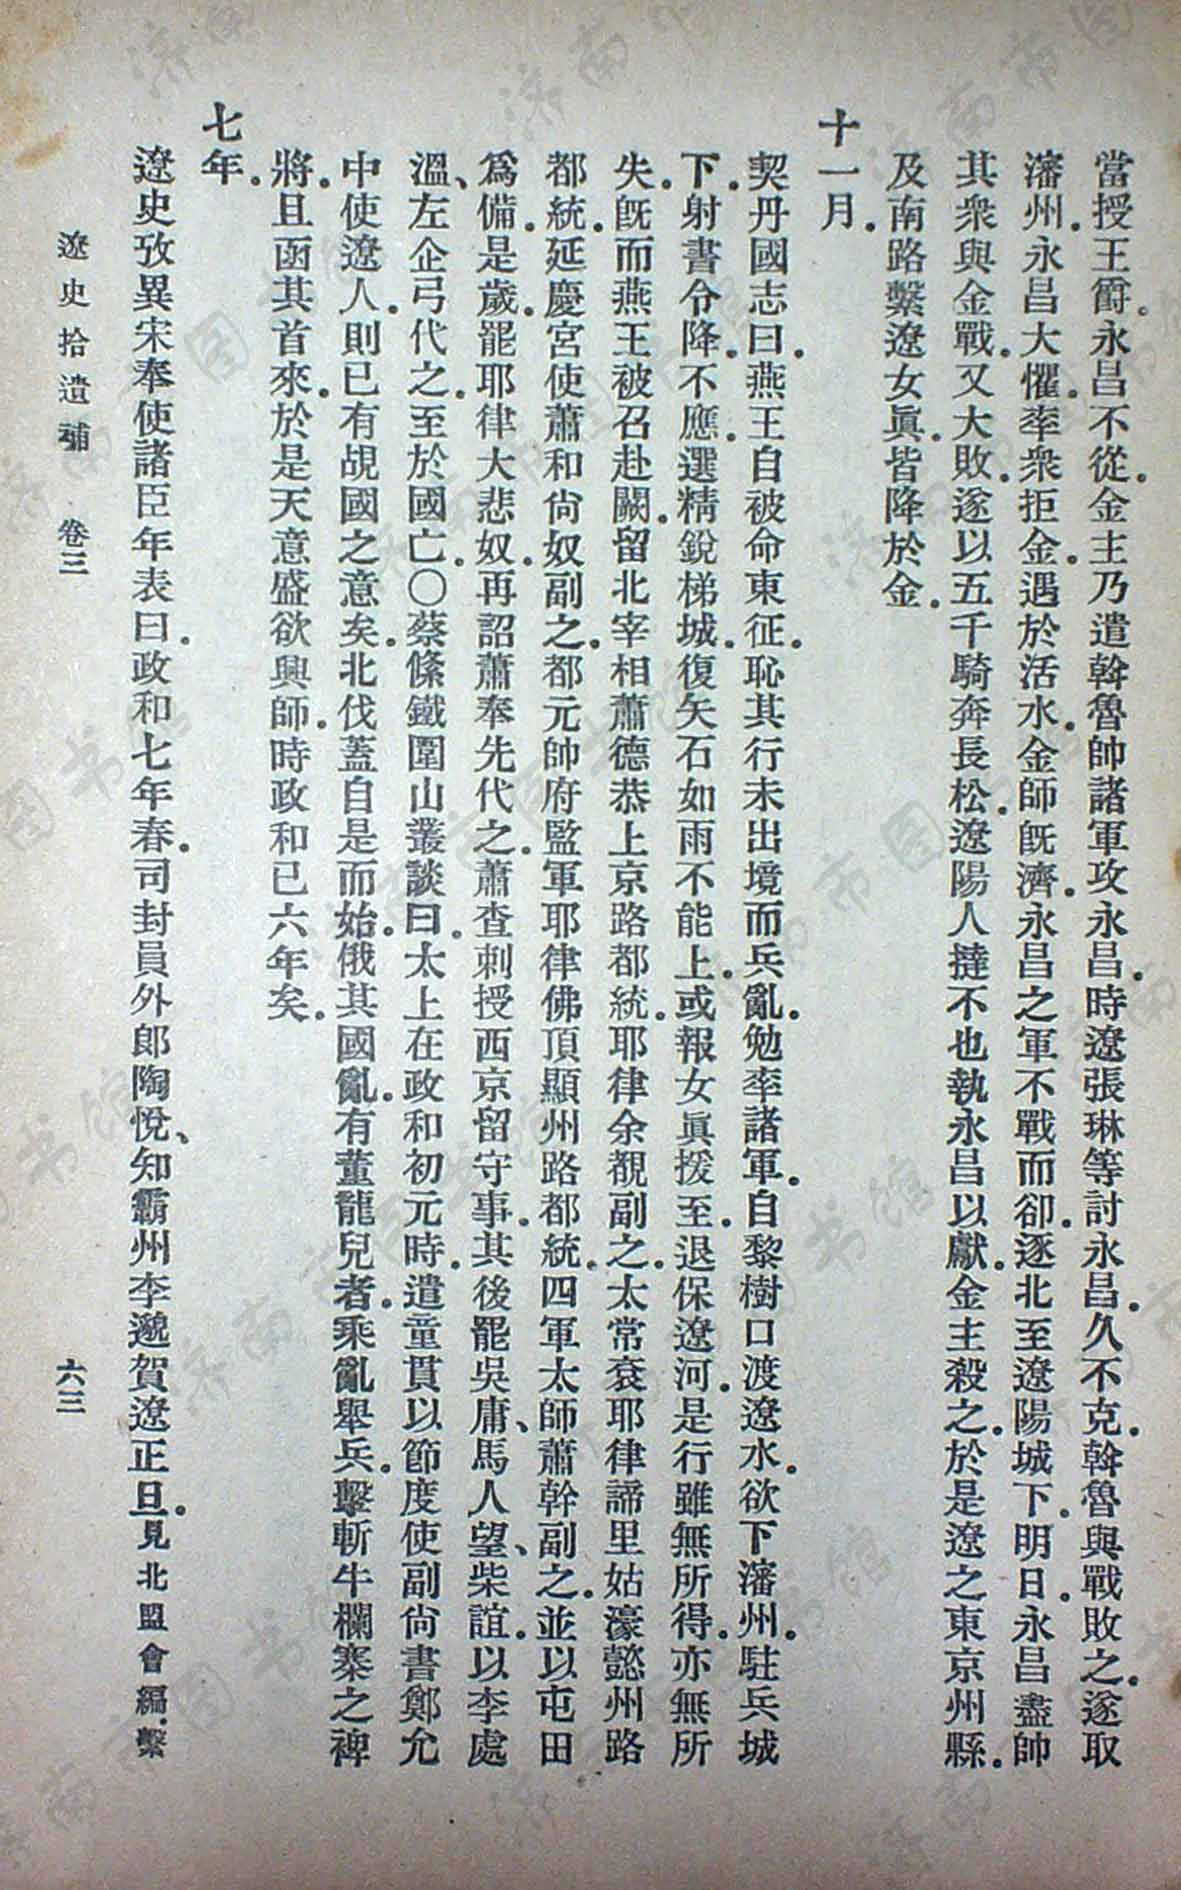 當授王爵。永昌不從。金主乃遣斡魯帥諸軍攻永昌。時遼張琳等討永昌。久不克。斡魯與戰敗之。遂取
瀋州。永昌大懼。率衆拒金。遇於活水。金師旣濟。永昌之軍不戰而卻。逐北至遼陽城下。明日。永昌盡帥
其衆與金戰。又大敗。遂以五千騎奔長松。遼陽人撻不也執永昌以獻。金主殺之。於是遼之東京州縣。
及南路繫遼女眞。皆降於金。
十一月。
契丹國志曰。燕王自被命東征。恥其行未出境而兵亂。勉率諸軍。自黎樹口渡遼水。欲下瀋州。駐兵城
下。射書令降。不應。選精銳梯城。復矢石如雨不能上。或報女眞援至。退保遼河。是行雖無所得。亦無所
失。旣而燕王被召赴闕。留北宰相蕭德恭上京路都統。耶律余覩副之。太常袞耶律諦里姑濠懿州路
都統。延慶宮使蕭和尙奴副之。都元帥府監軍耶律佛頂顯州路都統。四軍太師蕭幹副之。並以屯田
爲備。是歲。罷耶律大悲奴。再詔蕭奉先代之。蕭查剌授西京留守事。其後罷吳庸、馬人望、柴誼。以李處
溫、左企弓代之。至於國亡。〇蔡絛鐵圍山叢談曰。太上在政和初元時。遣童貫以節度使副尙書鄭允
中使遼人。則已有覘國之意矣。北伐蓋自是而始。俄其國亂。有董龍兒者。乘亂舉兵。擊斬牛欄寨之裨
將。且函其首來。於是天意盛欲興師。時政和已六年矣。
七年。
遼史攷異宋奉使諸臣年表曰。政和七年春。司封員外郎陶悅、知霸州李邈賀遼正旦。見北盟會編。繫
遼史拾遺補 卷三 六三